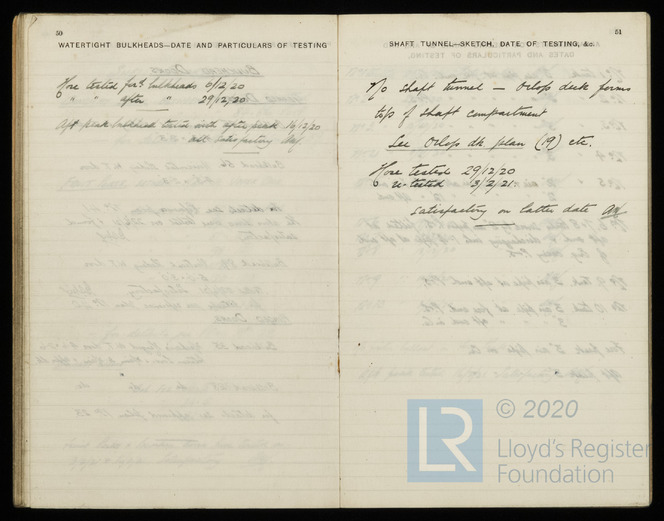 50
WATERTIGHT BULKHEADS—DATE AND PARTICULARS OF TESTING
Hose tested for'd bulkheads 6/12/20
" " after " 29/12/20
Aft peak bulkhead tested with after peak 16/12/20
satisfactory
51
SHAFT TUNNEL—SKETCH, DATE OF TESTING, &c.
No shaft tunnel — Orlop deck forms
top of shaft compartment
See Orlop dk plan (19) etc.
Hose tested 29/12/20
re-tested 3/2/21
satisfactory on latter date
© 2020
LR
Lloyd's Register
Foundation